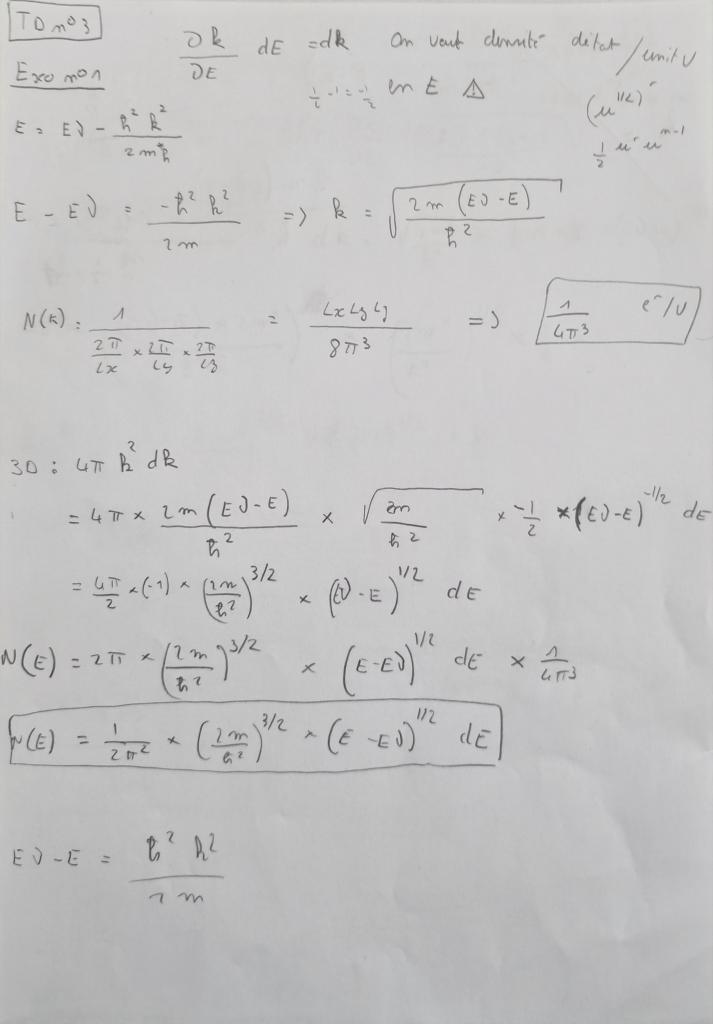 TD n°3
∂k/∂E dE = dk On veut densité d'état / unit V
Exo n°1
1/2 - 1 = -1/2 en E ⚠
(u^{1/2})'
1/2 u' u^{n-1}
E = EV - ħ² k² / 2m*h
E - EV = -ħ² k² / 2m => k = √(2m (EV - E) / ħ²)
N(k) : 1 / (2π/Lx × 2π/Ly × 2π/Lz) = Lx Ly Lz / 8π³ => 1/4π³ e⁻/V
3D : 4π k² dk
= 4π × 2m (EV - E) / ħ² × √(2m / ħ²) × -1/2 × (EV - E)^{-1/2} dE
= 4π/2 × (-1) × (2m/ħ²)^{3/2} × (EV - E)^{1/2} dE
N(E) = 2π × (2m/ħ²)^{3/2} × (E - EV)^{1/2} dE × 1/4π³
N(E) = 1/2π² × (2m/ħ²)^{3/2} × (E - EV)^{1/2} dE
EV - E = ħ² k² / 2m